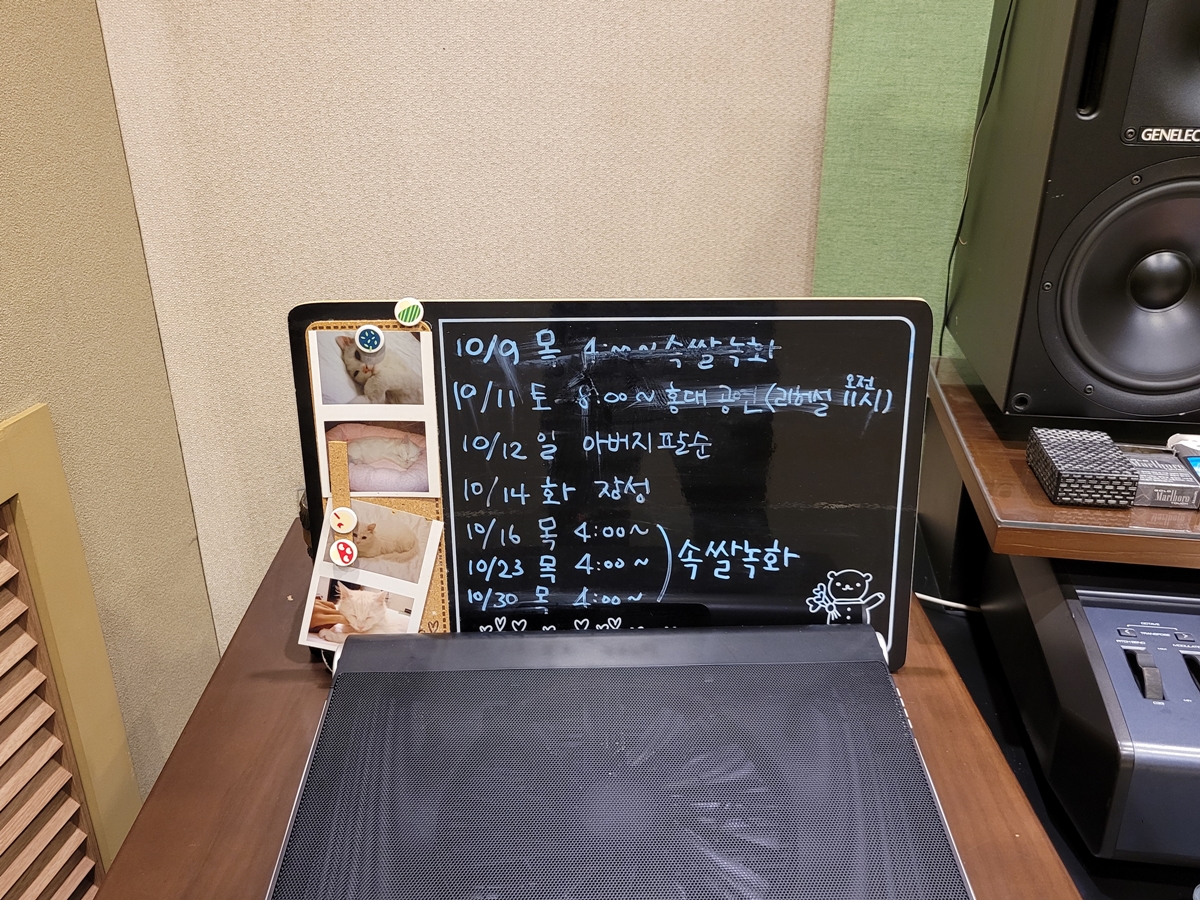 10/9 목 4:00~ 속쌀녹화
10/11 토 8:00~ 홍대 공연 (리허설 오전 11시)
10/12 일 아버지 팔순
10/14 화 장성
10/16 목 4:00~
10/23 목 4:00~ 속쌀녹화
10/30 목 4:00~
GENELEC
Marlboro
OCTAVE
TRANSPOSE